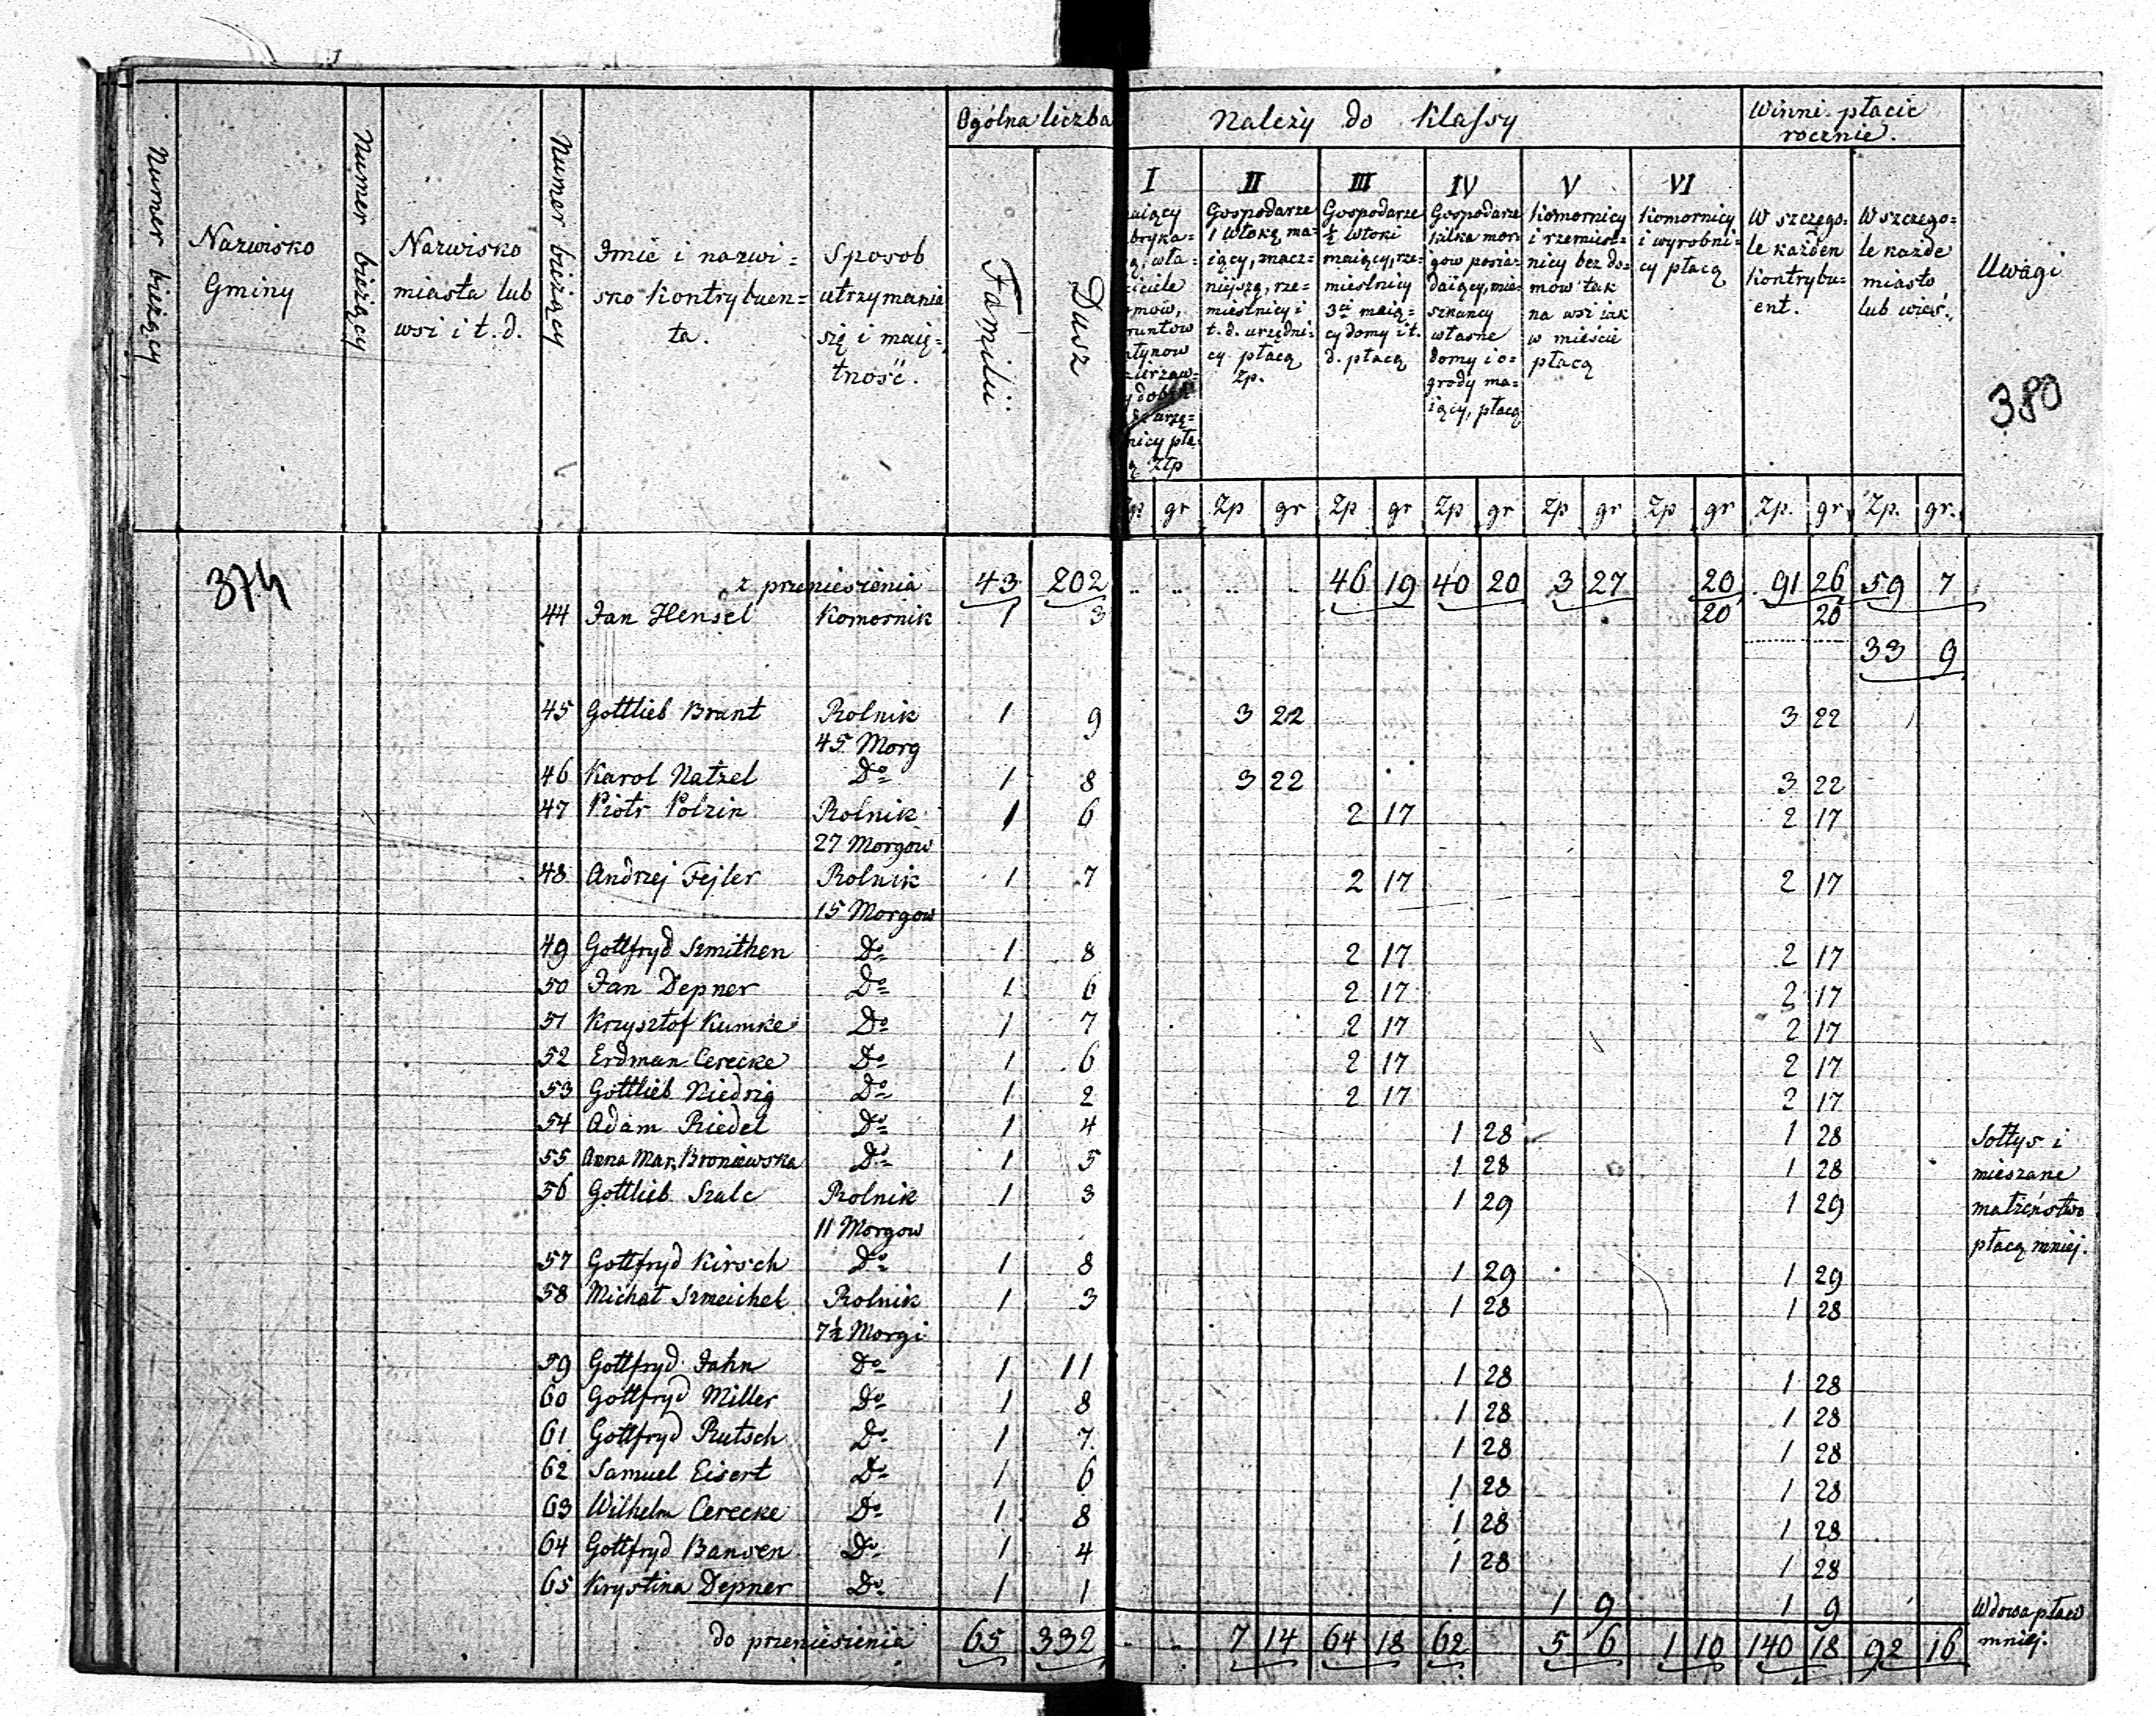 Ogólna liczba
Należy do Klassy
Winni płacić
rocznie.
Numer bieżący
Nazwisko
Gminy
Numer bieżący
Nazwisko
miasta lub
wsi i t. d.
Numer bieżący
Imie i nazwi=
sko kontrybuen=
ta.
Sposob
utrzymania
się i maię=
tność.
Familii
Dusz
I
nicy pła=
ą Złp
II
Gospodarze
1 włokę ma=
iący, znacz=
nieyszą, rze=
mieślnicy i
t. d. urzędni=
cy płacą
Zp.
III
Gospodarze
½ włoki
maiący, rze=
mieślnicy
3ci maią=
cy domy i t.
d. płacą
IV
Gospodarze
kilka mor=
gow posia=
daiący, mie=
szkancy
własne
domy i o=
grody ma=
iący, płacą
V
Komornicy
i rzemieśl=
nicy bez do=
mów tak
na wsi iak
w mieście
płacą
VI
Komornicy
i wyrobni=
cy płacą
W szczegó=
le każden
kontrybu=
ent.
W szczegó=
le każde
miasto
lub wieś.
Uwagi
380
gr Zp gr Zp gr Zp gr Zp gr Zp gr Zp. gr Zp. gr.
374
z przeniesienia 43 202 46 19 40 20 3 27 20 91 26 59 7
44 Jan Hensel Komornik 1 3 20 20
33 9
45 Gottlieb Brant Rolnik 1 9 3 22 3 22
45 Morg
46 Karol Natzel Do 1 8 3 22 3 22
47 Piotr Polzin Rolnik 1 6 2 17 2 17
27 Morgow
48 Andrzej Fejler Rolnik 1 7 2 17 2 17
15 Morgow
49 Gottfryd Szmithen Do 1 8 2 17 2 17
50 Jan Depner Do 1 6 2 17 2 17
51 Krzysztof Kumke Do 1 7 2 17 2 17
52 Erdman Cerecke Do 1 6 2 17 2 17
53 Gottlieb Niedrig Do 1 2 2 17 2 17
54 Adam Riedel Do 1 4 1 28 1 28 Sołtys i
55 Anna Mar. Broniewska Do 1 5 1 28 1 28 mieszane
56 Gottlieb Szulc Rolnik 1 3 1 29 1 29 małżeństwo
11 Morgow płacą mniej.
57 Gottfryd Kirsch Do 1 8 1 29 1 29
58 Michał Szmeichel Rolnik 1 3 1 28 1 28
7½ Morgi
59 Gottfryd Jahn Do 1 11 1 28 1 28
60 Gottfryd Miller Do 1 8 1 28 1 28
61 Gottfryd Rutsch Do 1 7 1 28 1 28
62 Samuel Eisert Do 1 6 1 28 1 28
63 Wilhelm Cerecke Do 1 8 1 28 1 28
64 Gottfryd Bansen Do 1 4 1 28 1 28
65 Krystina Depner Do 1 1 1 9 1 9 Wdowa płaci
do przeniesienia 65 332 7 14 64 18 62 5 6 1 10 140 18 92 16 mniej.